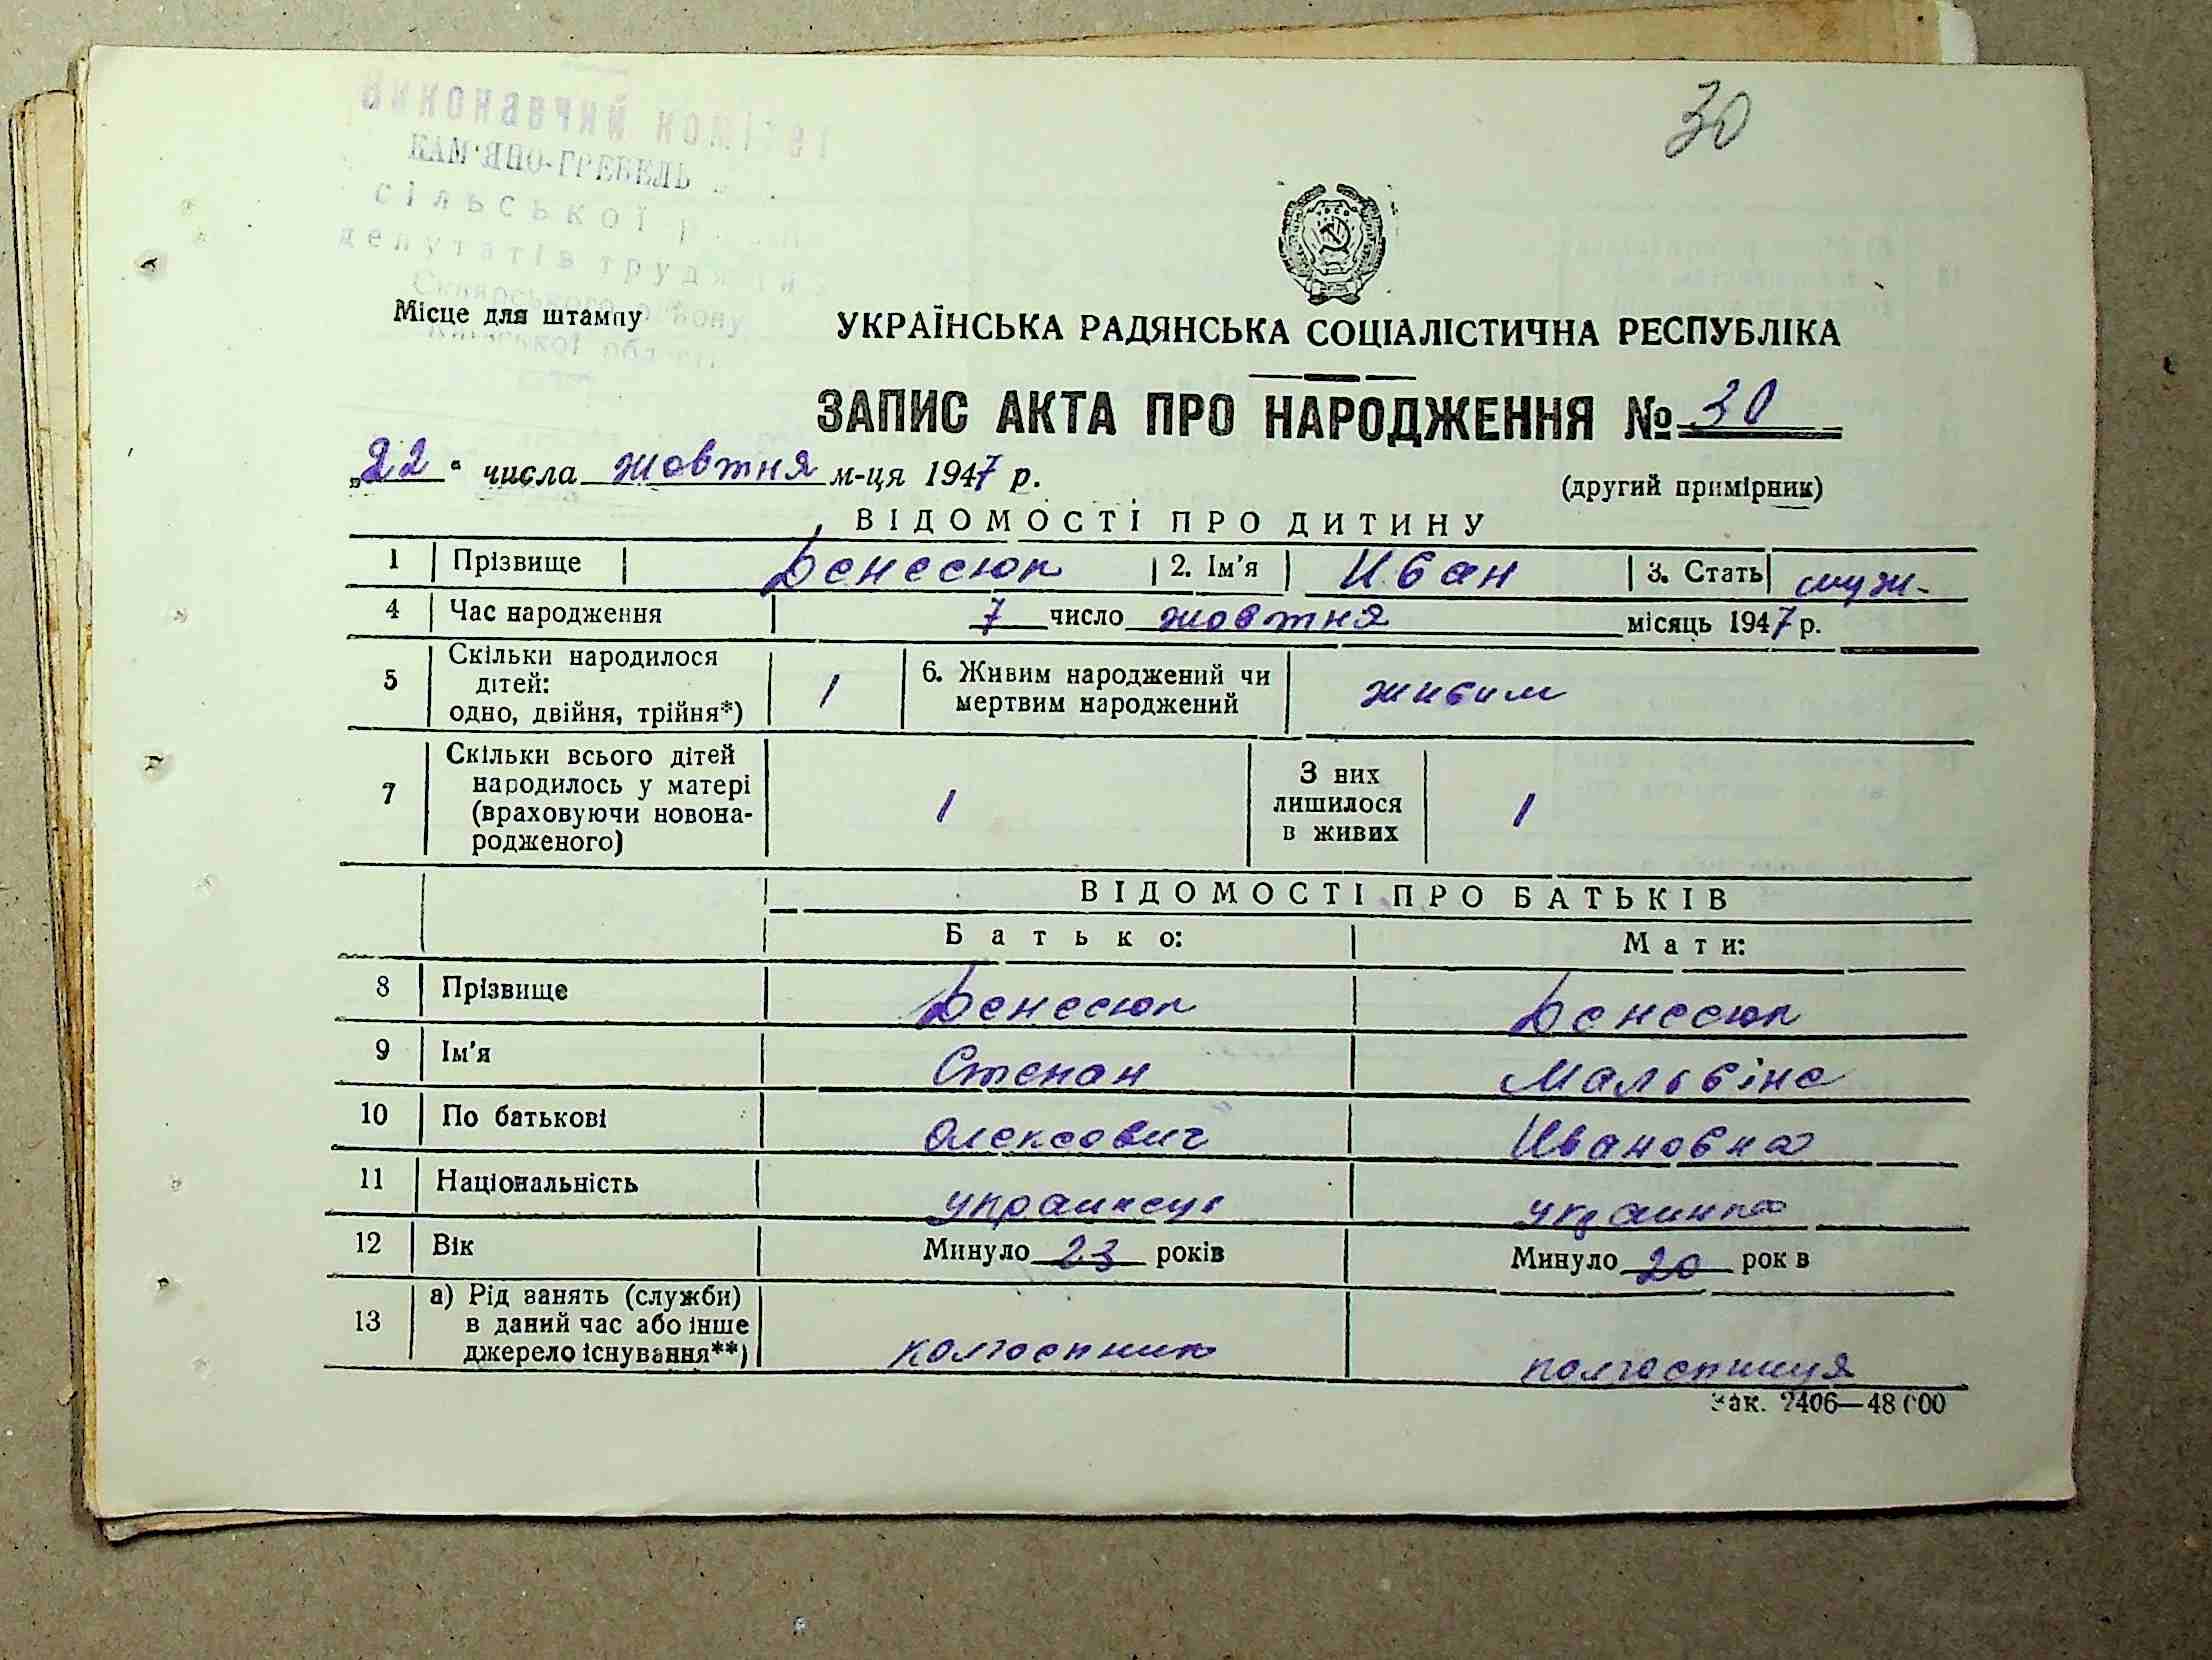 30
Виконавчий комітет
КАМ'ЯНО-ГРЕБЕЛЬ
сільської
депутатів трудящих
Сквирського району
Київської області
Місце для штампу
УКРАЇНСЬКА РАДЯНСЬКА СОЦІАЛІСТИЧНА РЕСПУБЛІКА
ЗАПИС АКТА ПРО НАРОДЖЕННЯ № 30
„22" числа жовтня м-ця 1947 р.
(другий примірник)
ВІДОМОСТІ ПРО ДИТИНУ
1 Прізвище Денесюк 2. Ім'я Иван 3. Стать муж.
4 Час народження 7 число жовтня місяць 1947 р.
5 Скільки народилося
дітей:
одно, двійня, трійня*) 1
6. Живим народжений чи
мертвим народжений живим
7 Скільки всього дітей
народилось у матері
(враховуючи новона-
родженого) 1
З них
лишилося
в живих 1
ВІДОМОСТІ ПРО БАТЬКІВ
Батько: Мати:
8 Прізвище Денесюк Денесюк
9 Ім'я Степан Мальвіна
10 По батькові Олексович Ивановна
11 Національність украинець украинка
12 Вік Минуло 23 років Минуло 20 рок в
13 а) Рід занять (служби)
в даний час або інше
джерело існування**) колгоспник колгоспниця
Зак. 2406—48000